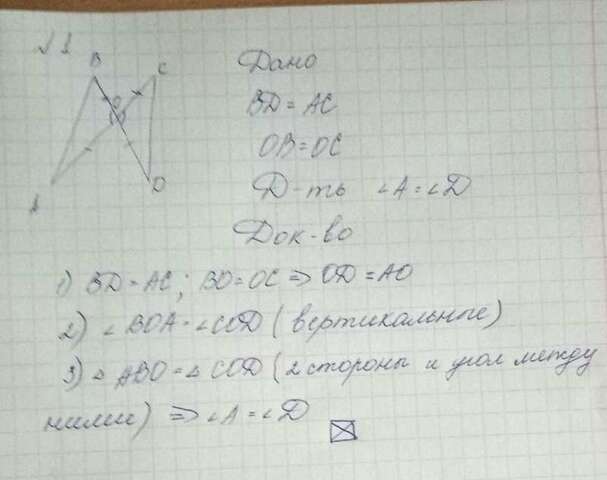 √ 1
B
C
O
A
D
Дано
BD = AC
OB = OC
Д-ть ∠A = ∠D
Док-во
1) BD = AC; BO = OC ⇒ OD = AO
2) ∠BOA = ∠COD (вертикальные)
3) △ABO = △COD (2 стороны и угол между
ними) ⇒ ∠A = ∠D